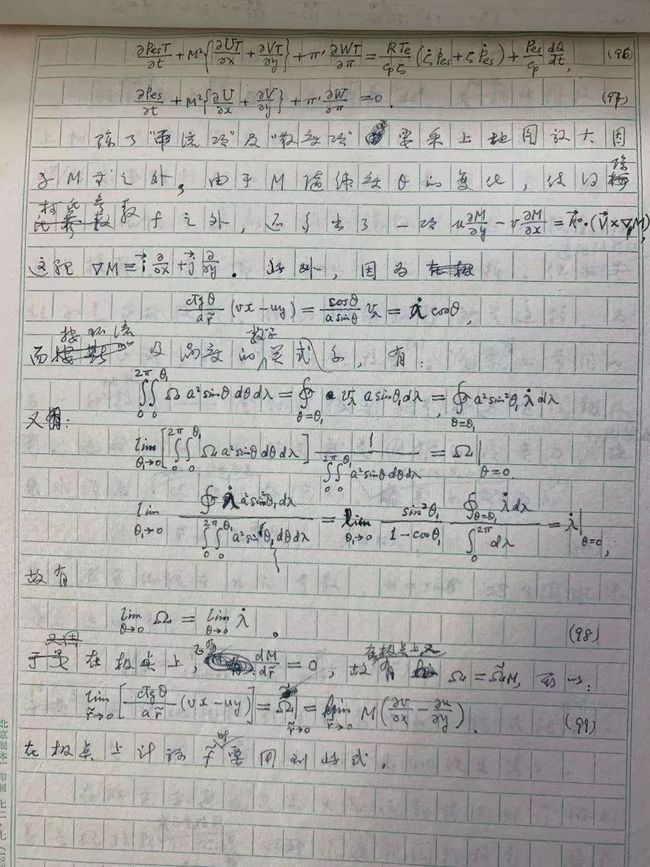 ∂P_esT/∂t + M²{∂UT/∂x + ∂VT/∂y} + π'∂WT/∂π = RT_e/(c_pζ) (ζ̇p_es + ζṗ_es) + P_es/c_p dQ/dt, (96)
∂P_es/∂t + M²{∂U/∂x + ∂V/∂y} + π'∂W/∂π = 0. (97)
除了"平流项"及"散度项" 要乘上地图放大因
子 M 之外, 由于 M 随纬度θ的变化, 使得
之外, 还多出了一项 u∂M/∂y − v∂M/∂x = k⃗°·(V⃗×∇M),
这里 ∇M ≡ i⃗ ∂/∂x + j⃗ ∂/∂y. 此外, 因为
ctgθ/(a r̃) (vx−uy) = cosθ/(a sinθ) v_λ = λ̇ cosθ,
而按环流及涡度的数学定义式子, 有:
∫₀^{2π}∫₀^{θ₁} Ω a² sinθ dθdλ = ∮_{θ=θ₁} v_λ a sinθ₁dλ = ∮_{θ=θ₁} a² sin²θ₁ λ̇ dλ
又有:
lim_{θ₁→0} [∫₀^{2π}∫₀^{θ₁} Ω a² sinθ dθdλ] 1/(∫₀^{2π}∫₀^{θ₁} a² sinθ dθdλ) = Ω|_{θ=0}
lim_{θ₁→0} ∮ λ̇ a² sin²θ₁dλ / (∫₀^{2π}∫₀^{θ₁} a² sinθ dθdλ) = lim_{θ₁→0} sin²θ₁/(1−cosθ₁) ∮_{θ=θ₁} λ̇dλ / ∫₀^{2π} dλ = λ̇|_{θ=0},
故有
lim_{θ→0} Ω = lim_{θ→0} λ̇. (98)
于是在极点上, dM/dr̃ = 0, 故在极点上又有 Ω = Ω̃M,
lim_{r̃→0} [ctgθ/(a r̃) (vx−uy)] = Ω̃|_{r̃→0} = lim_{r̃→0} M(∂v/∂x − ∂u/∂y). (99)
在极点上计算 f̃ 时要用到此式.
北京